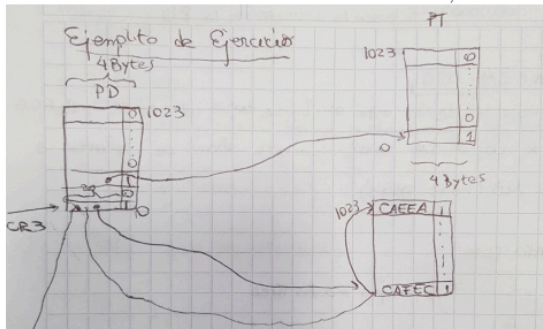 Ejemplito de Ejercicio
4 Bytes
PD
0 1023
0
1
0
1 0
CR3
PT
1023 0
0
0 1
4 Bytes
1023 CAEEA 1
1
CAFEC 1